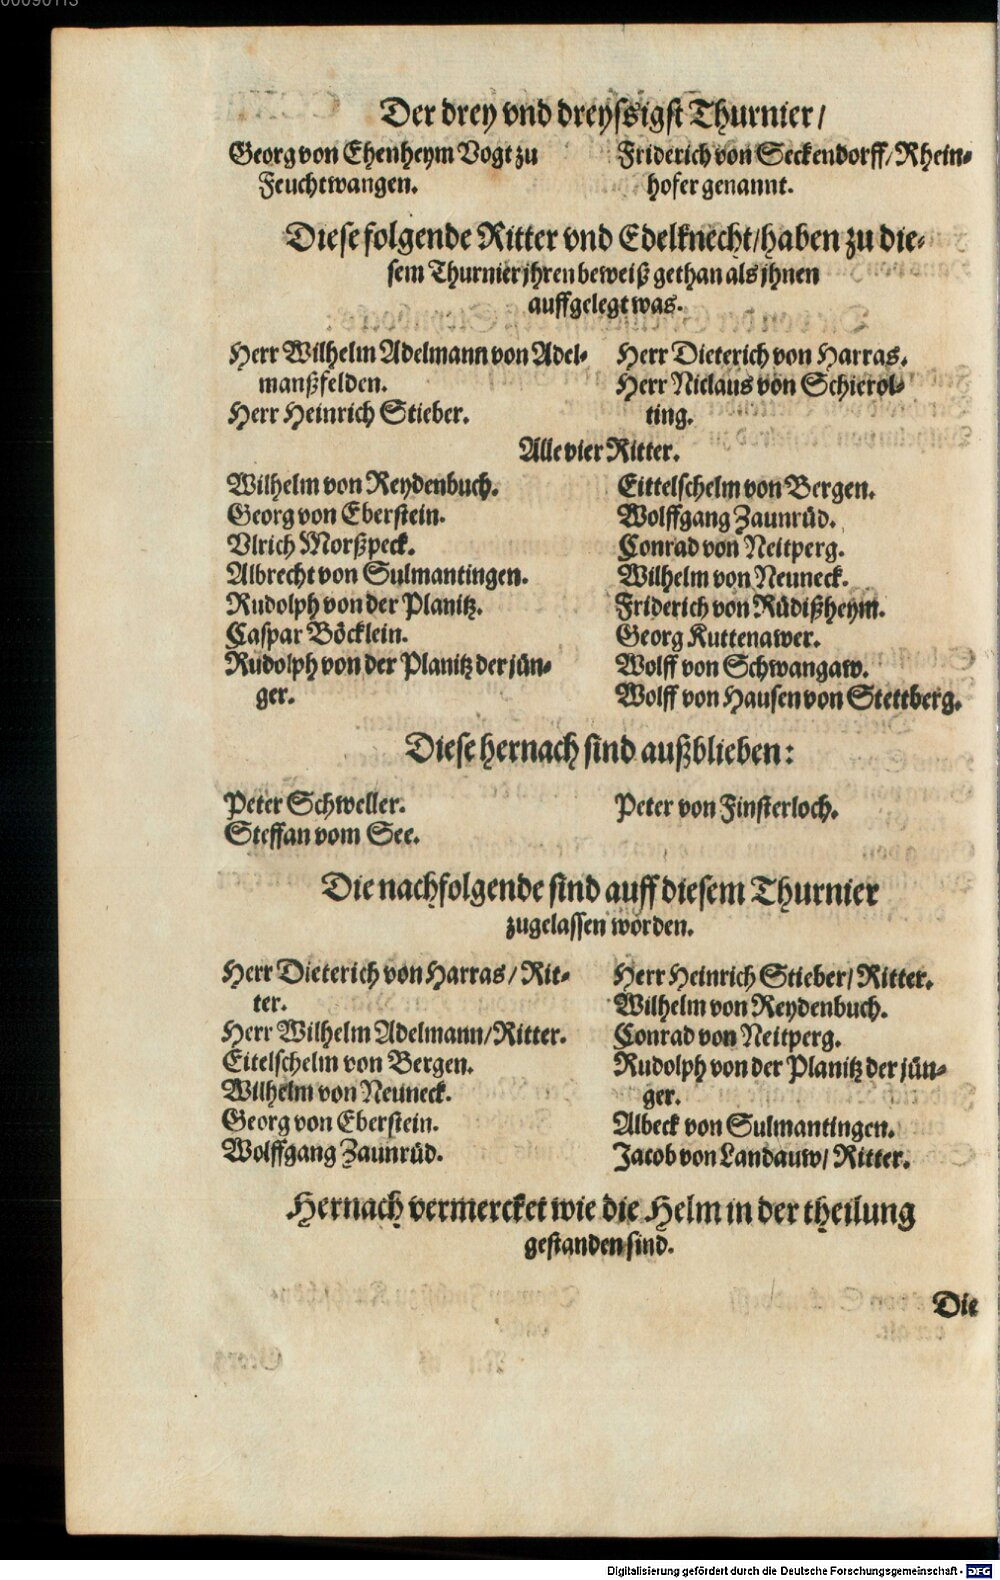 Der drey vnd dreyssigst Thurnier/
Georg von Ehenheym Vogt zu
Feuchtwangen.
Friderich von Seckendorff/ Rhein-
hofer genannt.
Diese folgende Ritter vnd Edelknecht/ haben zu die-
sem Thurnier jhren beweiß gethan als jhnen
auffgelegt was.
Herr Wilhelm Adelmann von Adel-
manßfelden.
Herr Heinrich Stieber.
Herr Dieterich von Harras.
Herr Niclaus von Schierol-
ting.
Alle vier Ritter.
Wilhelm von Reydenbuch.
Georg von Eberstein.
Vlrich Morßpeck.
Albrecht von Sulmantingen.
Rudolph von der Planitz.
Caspar Böcklein.
Rudolph von der Planitz der jün-
ger.
Eittelschelm von Bergen.
Wolffgang Zaunrüd.
Conrad von Neitperg.
Wilhelm von Neuneck.
Friderich von Rüdißheym.
Georg Kuttenawer.
Wolff von Schwangaw.
Wolff von Hausen von Stettberg.
Diese hernach sind außblieben:
Peter Schweller.
Steffan vom See.
Peter von Finsterloch.
Die nachfolgende sind auff diesem Thurnier
zugelassen worden.
Herr Dieterich von Harras/ Rit-
ter.
Herr Wilhelm Adelmann/ Ritter.
Eitelschelm von Bergen.
Wilhelm von Neuneck.
Georg von Eberstein.
Wolffgang Zaunrüd.
Herr Heinrich Stieber/ Ritter.
Wilhelm von Reydenbuch.
Conrad von Neitperg.
Rudolph von der Planitz der jün-
ger.
Albeck von Sulmantingen.
Jacob von Landauw/ Ritter.
Hernach vermercket wie die Helm in der theilung
gestanden sind.
Die
Digitalisierung gefördert durch die Deutsche Forschungsgemeinschaft - DFG